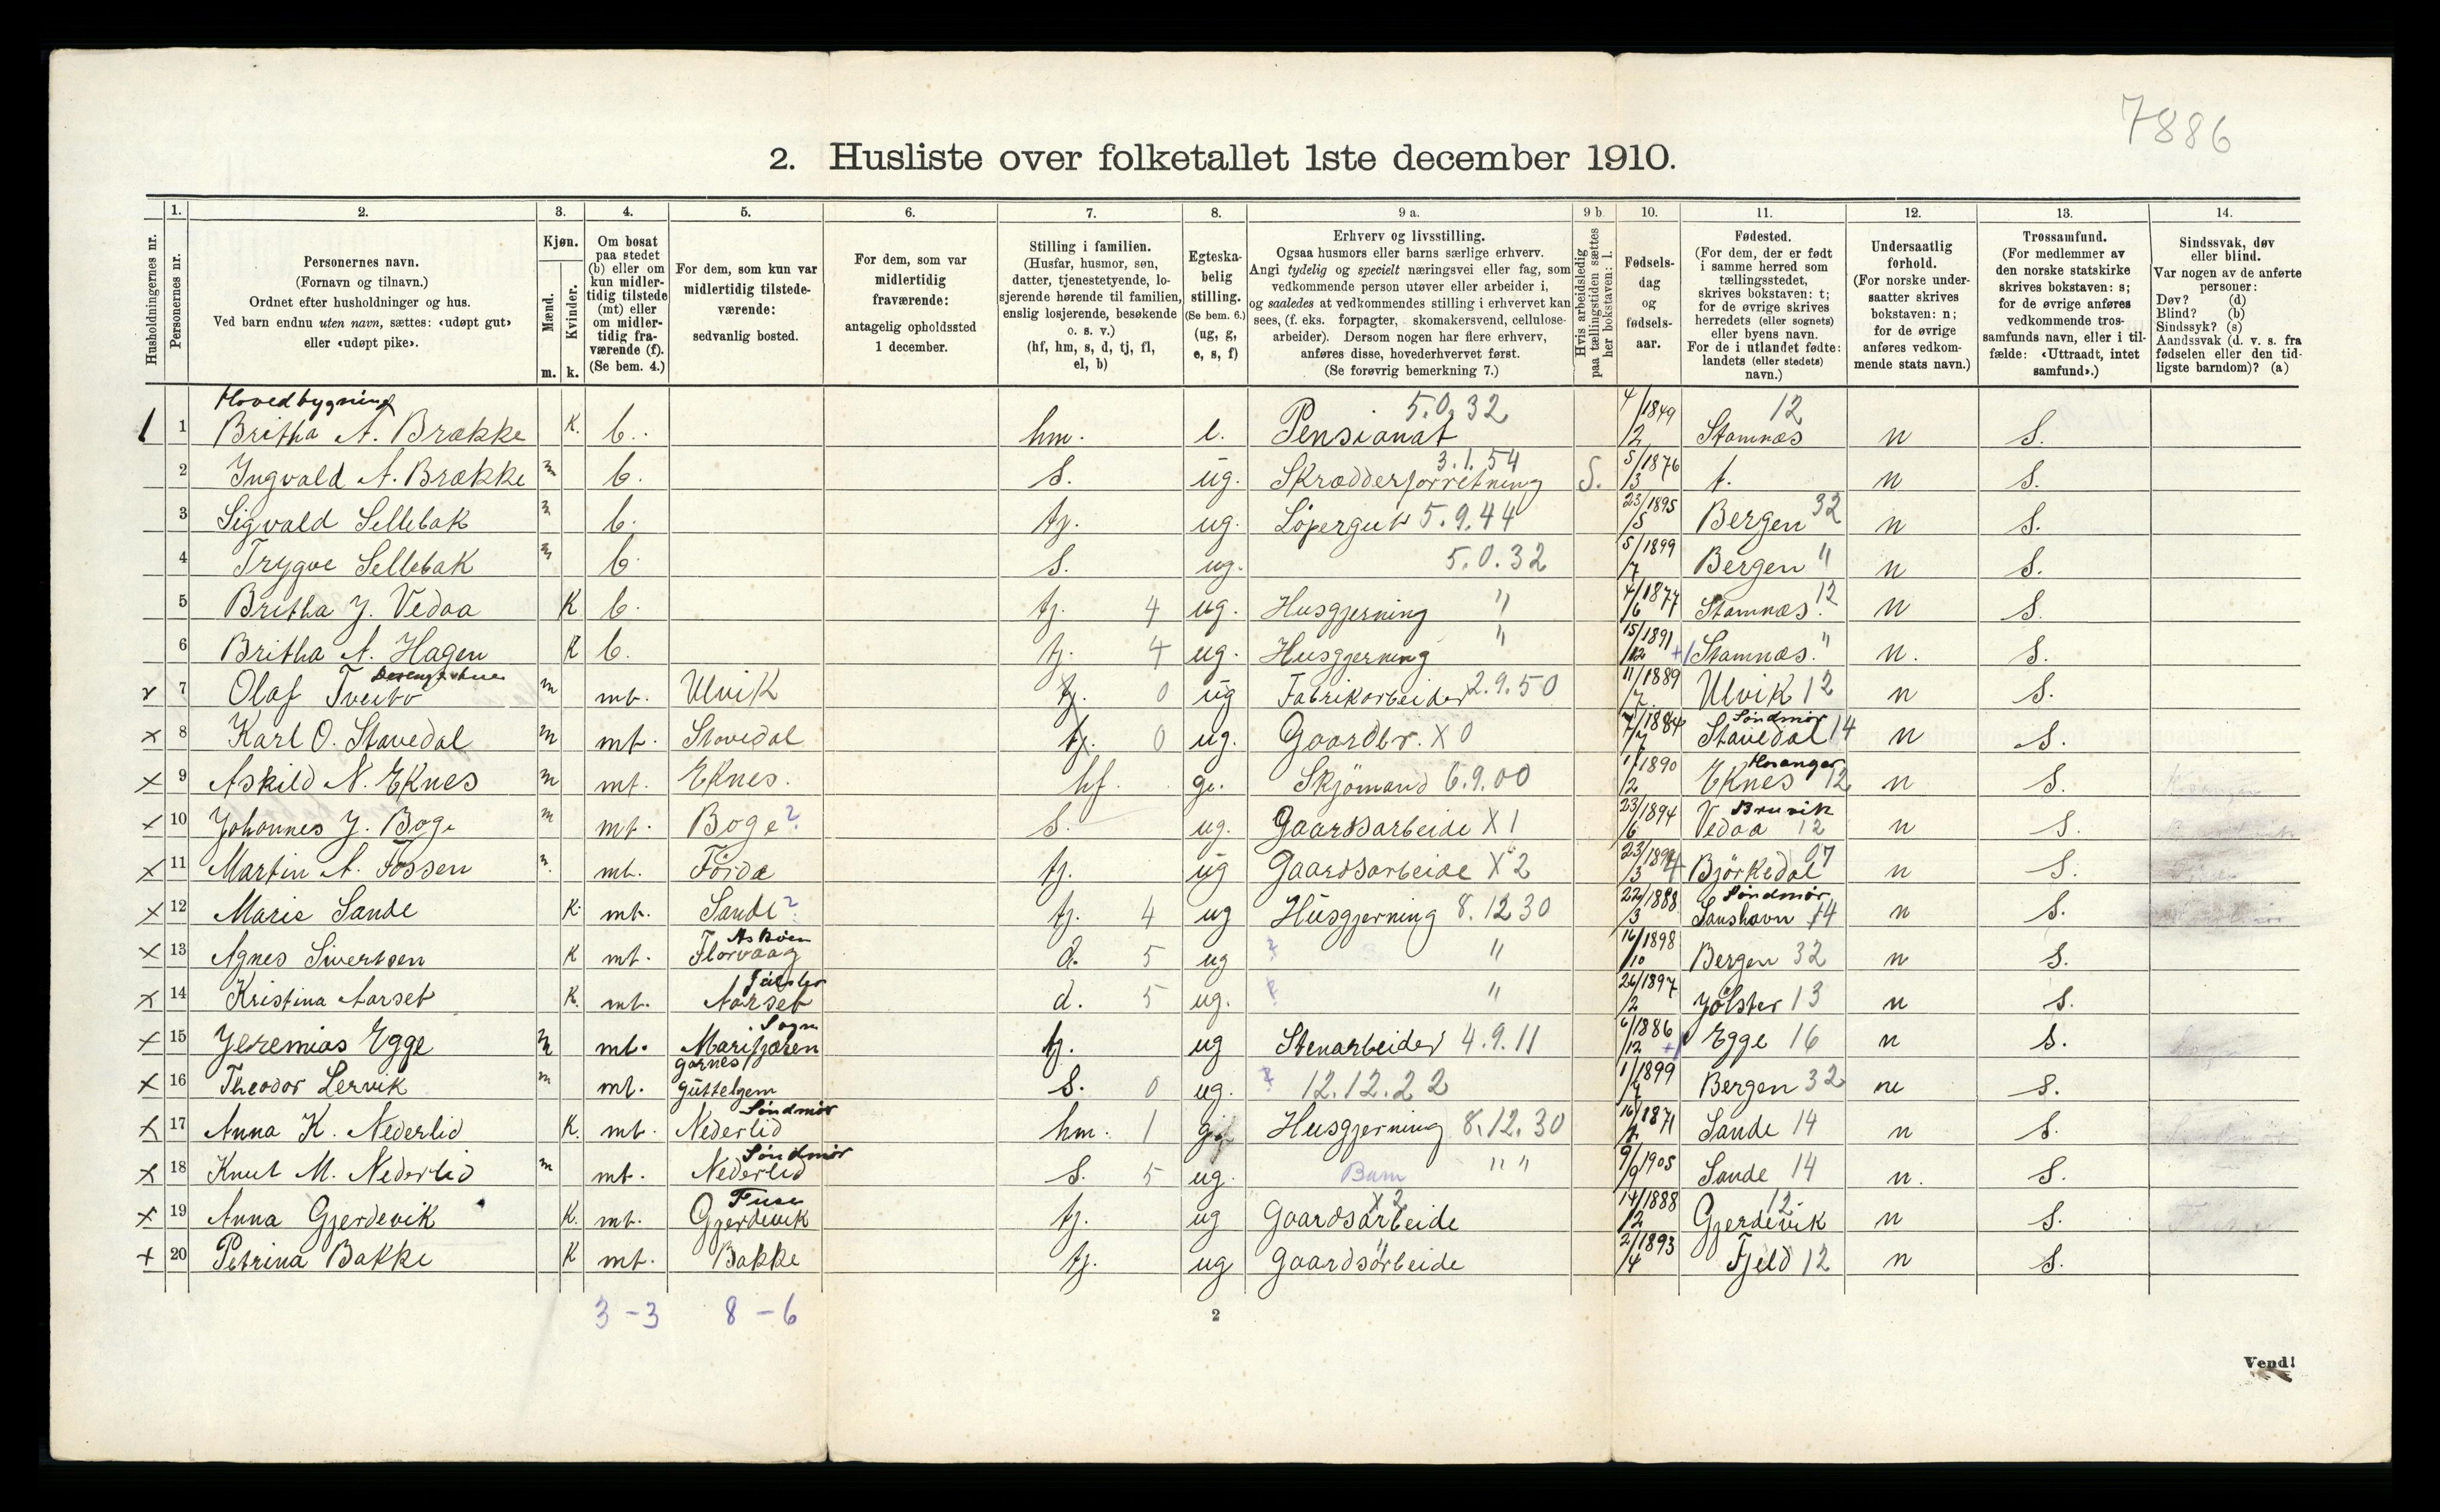 7886
2. Husliste over folketallet 1ste december 1910.
Husholdningernes nr.
1. Personernes nr.
2. Personernes navn. (Fornavn og tilnavn.) Ordnet efter husholdninger og hus. Ved barn endnu uten navn, sættes: «udøpt gut» eller «udøpt pike».
3. Kjøn. Mænd. m. Kvinder. k.
4. Om bosat paa stedet (b) eller om kun midlertidig tilstede (mt) eller om midlertidig fraværende (f). (Se bem. 4.)
5. For dem, som kun var midlertidig tilstedeværende: sedvanlig bosted.
6. For dem, som var midlertidig fraværende: antagelig opholdssted 1 december.
7. Stilling i familien. (Husfar, husmor, søn, datter, tjenestetyende, losjerende hørende til familien, enslig losjerende, besøkende o. s. v.) (hf, hm, s, d, tj, fl, el, b)
8. Egteskabelig stilling. (Se bem. 6.) (ug, g, e, s, f)
9 a. Erhverv og livsstilling. Ogsaa husmors eller barns særlige erhverv. Angi tydelig og specielt næringsvei eller fag, som vedkommende person utøver eller arbeider i, og saaledes at vedkommendes stilling i erhvervet kan sees, (f. eks. forpagter, skomakersvend, cellulosearbeider). Dersom nogen har flere erhverv, anføres disse, hovederhvervet først. (Se forøvrig bemerkning 7.)
9 b Hvis arbeidsledig paa tællingstiden sættes her bokstaven: l.
10. Fødselsdag og fødselsaar.
11. Fødested. (For dem, der er født i samme herred som tællingsstedet, skrives bokstaven: t; for de øvrige skrives herredets (eller sognets) eller byens navn. For de i utlandet fødte: landets (eller stedets) navn.)
12. Undersaatlig forhold. (For norske undersaatter skrives bokstaven: n; for de øvrige anføres vedkommende stats navn.)
13. Trossamfund. (For medlemmer av den norske statskirke skrives bokstaven: s; for de øvrige anføres vedkommende trossamfunds navn, eller i tilfælde: «Uttraadt, intet samfund».)
14. Sindssvak, døv eller blind. Var nogen av de anførte personer: Døv? (d) Blind? (b) Sindssyk? (s) Aandssvak (d. v. s. fra fødselen eller den tidligste barndom)? (a)
Hovedbygning 5.0.32 12
1 1 Britha A. Brække K. b. hm. e. Pensionat 4/2 1849 Stamnæs n S.
3.1.54
2 Ingvald A. Brække m b. s. ug. Skrædderforretning S. 5/3 1876 t. n S.
3 Sigvald Sellebak m b. tj. ug. Löpergut 5.9.44 23/5 1895 Bergen 32 n S.
4 Trygve Sellebak m b s. ug. 5.0.32 5/7 1899 Bergen " n S.
5 Britha J. Vedaa K b. tj. 4 ug. Husgjerning " 4/6 1877 Stamnæs. 12 n S.
6 Britha A. Hagen K b. tj. 4 ug. Husgjerning " 15/12 1891 Stamnæs. " n. S.
7 Olaf Tveito m mt. Ulvik tj. 0 ug Fabrikarbeider 2.9.50 11/7 1889 Ulvik 12 n S.
Søndmør
x 8 Karl O. Stavedal m mt. Stavedal tj. 0 ug. Gaardbr. X 0 7/7 1884 Stavedal 14 n S.
Hosanger
x 9 Askild N. Eknes m mt. Eknes. hf. g. Skjömand 6.9.00 1/2 1890 Eknes 12 n S.
Bruvik
x 10 Johannes J. Boge m mt. Boge? s. ug. Gaardsarbeide X 1 23/6 1894 Vedaa 12 n S.
x 11 Martin A. Fossen m. mt. Förde tj. ug Gaardsarbeide X 2 23/3 1894 Björkedal 07 n S.
Søndmør
x 12 Marie Sande K. mt. Sande? tj. 4 ug Husgjerning 8.12 30 22/3 1888 Lanshavn 14 n S.
Askøen
x 13 Agnes Sivertsen K mt. Florvaag d. 5 ug ? " 16/10 1898 Bergen 32 n S.
Jølster
x 14 Kristina Aarset K. mt. Aarset d. 5 ug. ? " 26/2 1897 Jölster 13 n S.
Sogn
x 15 Jeremias Egge m mt. Marifjæren tj. ug Stenarbeider 4.9.11 6/12 1886 Egge 16 n S.
Garnes
x 16 Theodor Lervik m mt. guttehjem s. 0 ug. ? 12.12.22 1899 Bergen 32 n S.
Søndmør
x 17 Anna K. Nederlid K. mt. Nederlid hm. 1 g. Husgjerning 8.12.30 16/ 1871 Sande 14 n S.
Søndmør
x 18 Knut M. Nederlid m mt. Nederlid s. 5 ug. Barn " " 9/9 1905 Sande 14 n. S.
Fuse X 2 12
x 19 Anna Gjerdevik K. mt. Gjerdevik tj. ug Gaardsarbeide 14/12 1888 Gjerdevik n S.
x 20 Petrina Bakke K mt. Bakke tj. ug Gaardsarbeide " 2/4 1893 Fjeld 12 n S.
3 - 3 8 - 6
2
Vend!